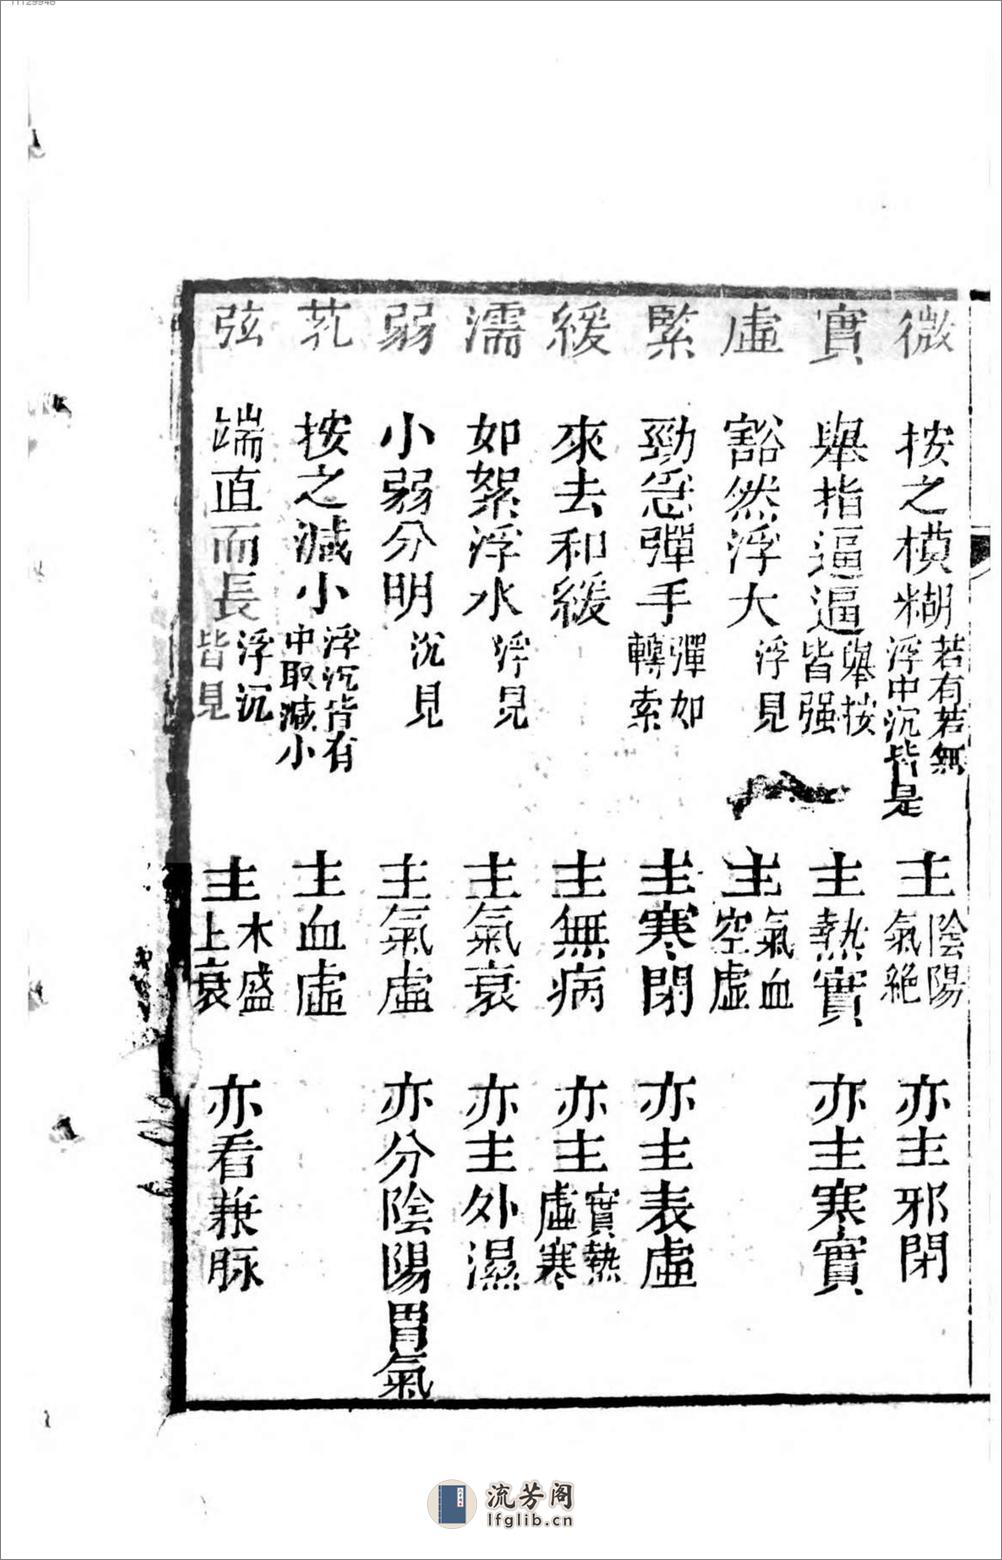 微　按之模糊　若有若無浮中沉皆是　主陰陽氣絕　亦主邪閉
實　舉指逼逼　舉按皆强　主熱實　亦主寒實
虛　豁然浮大　浮見　主氣血空虛
緊　勁急彈手　彈如轉索　主寒閉　亦主表虛
緩　來去和緩　主無病　亦主實熱虛寒
濡　如絮浮水　浮見　主氣衰　亦主外濕
弱　小弱分明　沉見　主氣虛　亦分陰陽胃氣
芤　按之減小　浮沉皆有中取減小　主血虛
弦　端直而長　浮沉皆見　主木盛土衰　亦看兼脉
流芳阁
lfglib.cn